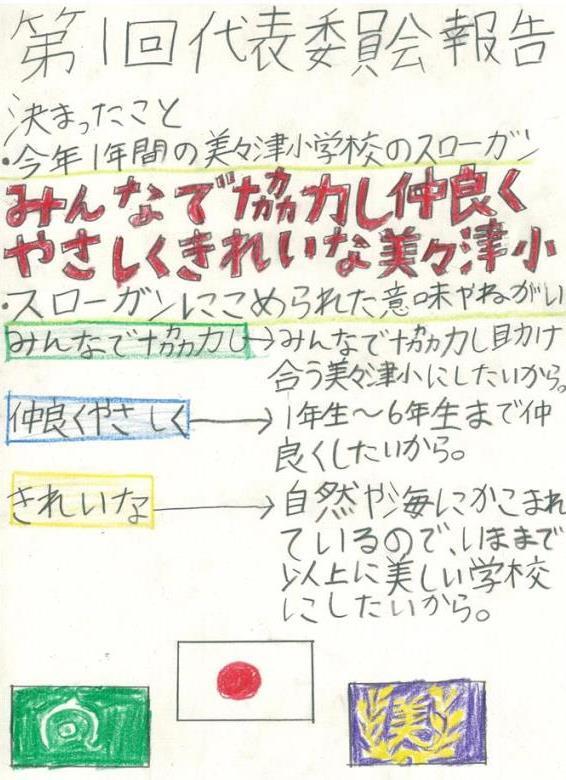 第1回代表委員会報告
決まったこと
・今年1年間の美々津小学校のスローガン
みんなで協力し仲良く
やさしくきれいな美々津小
・スローガンにこめられた意味やねがい
みんなで協力し→みんなで協力し助け
合う美々津小にしたいから。
仲良くやさしく→1年生〜6年生まで仲
良くしたいから。
きれいな→自然や海にかこまれ
ているので、いままで
以上に美しい学校
にしたいから。
美